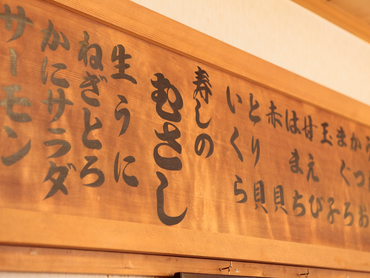 かつお
まぐろ
玉子
甘えび
はまち
赤貝
とり貝
いくら
寿しの
むさし
生うに
ねぎとろ
かにサラダ
サーモン